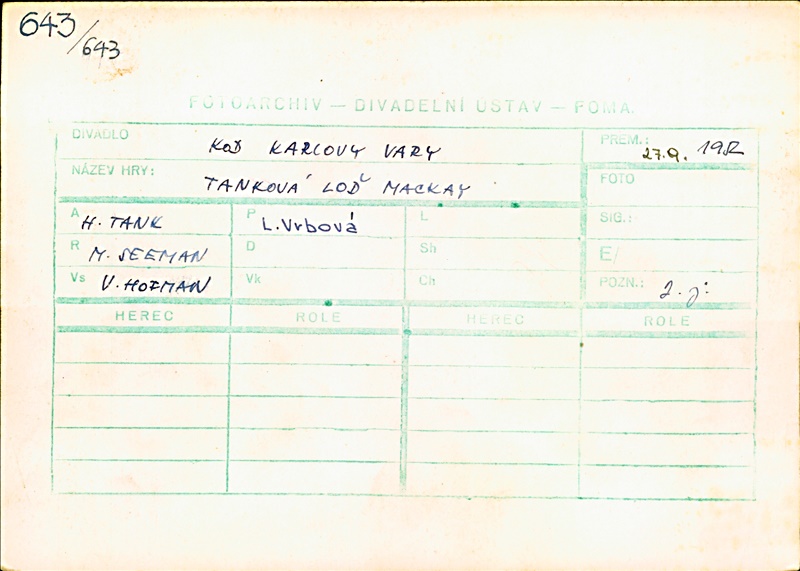 643/643
FOTOARCHIV — DIVADELNÍ ÚSTAV — FOMA
DIVADLO KOD KARLOVY VARY PREM.: 27.9. 1952
NÁZEV HRY: TANKOVÁ LOĎ MACKAY FOTO
A H. TANK P L. Vrbová L SIG.:
R M. SEEMAN D Sh E/
Vs V. HOFMAN Vk Ch POZN.: 2. j.
HEREC ROLE HEREC ROLE